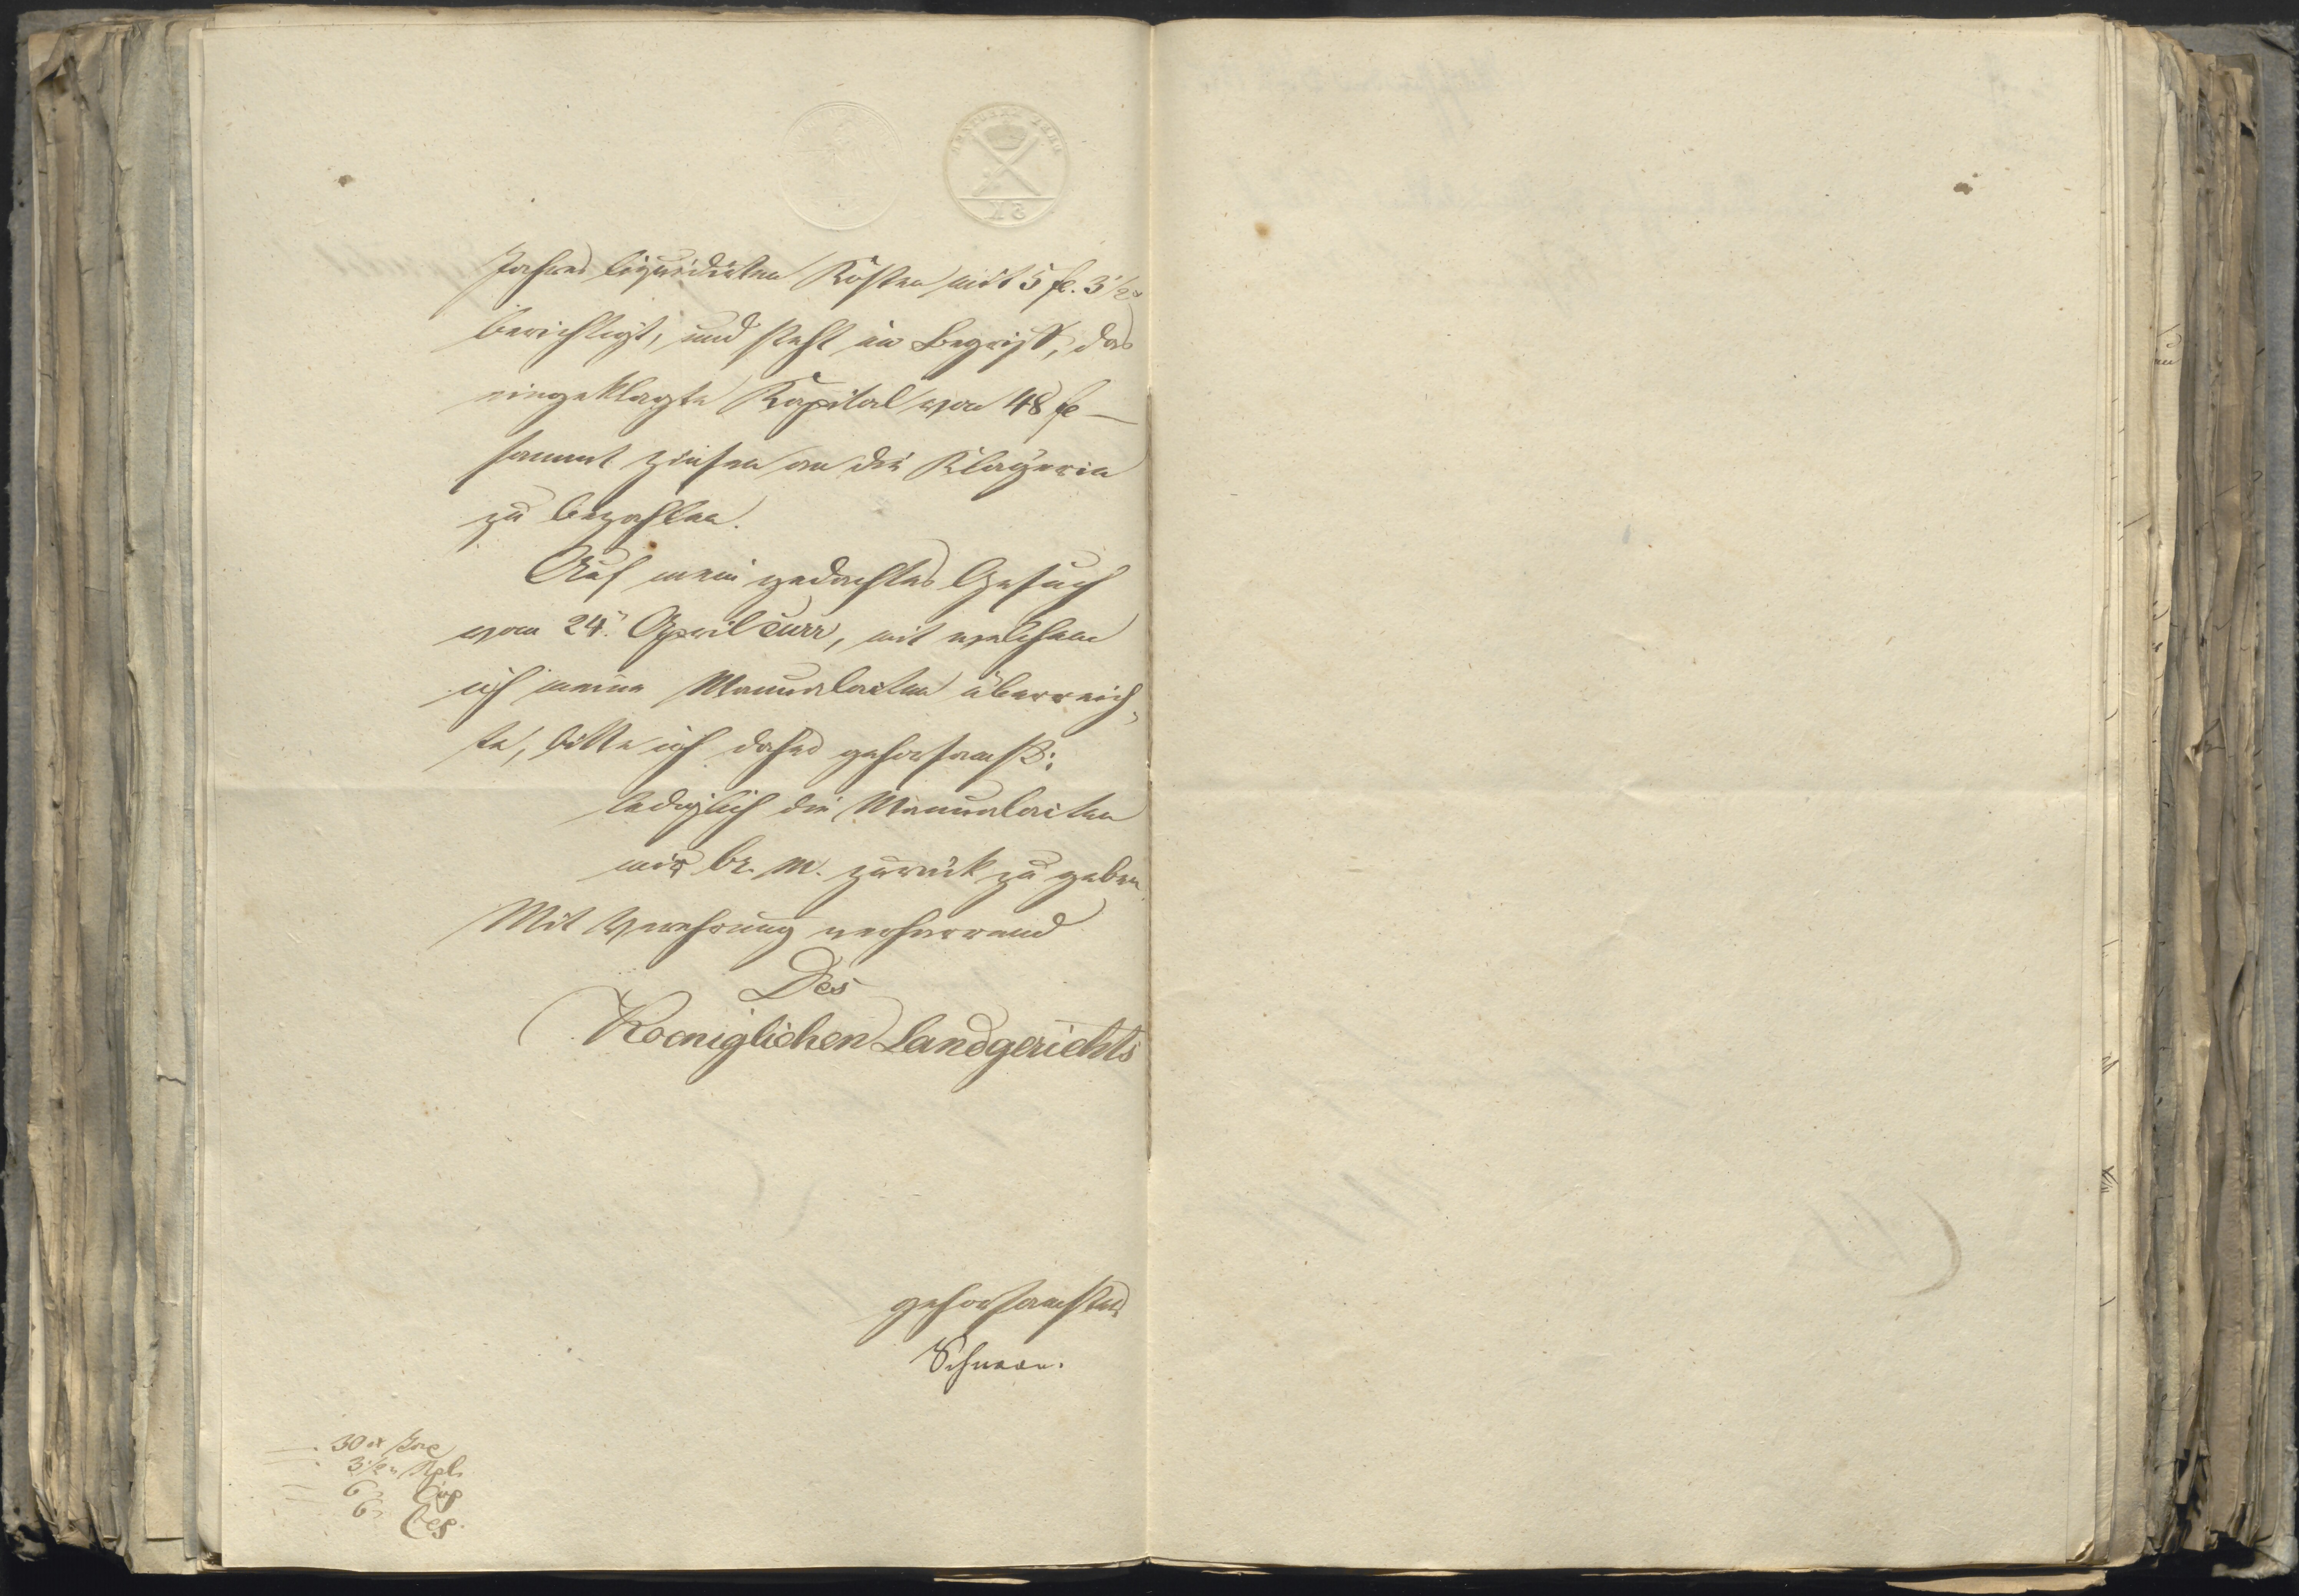 Jahres liquidirten Kosten mit 5 fl. 3 1/2 x
berichtigt, und steht im Begriff, das
eingeklagte Kapital von 48 fl —
sammt Zinsen an die Klägerin
zu bezahlen.
Auf mein gedachtes Gesuch
vom 24. April curr, mit welchem
ich meine Manualacten überreich-
te, bitte ich daher gehorsamst:
lediglich die Manualacten
mir br. m. zurück zu geben.
Mit Verehrung verharrend
Des
Koeniglichen Landgerichts
gehorsamster
30 x
3 1/2 "
6 "
6 "